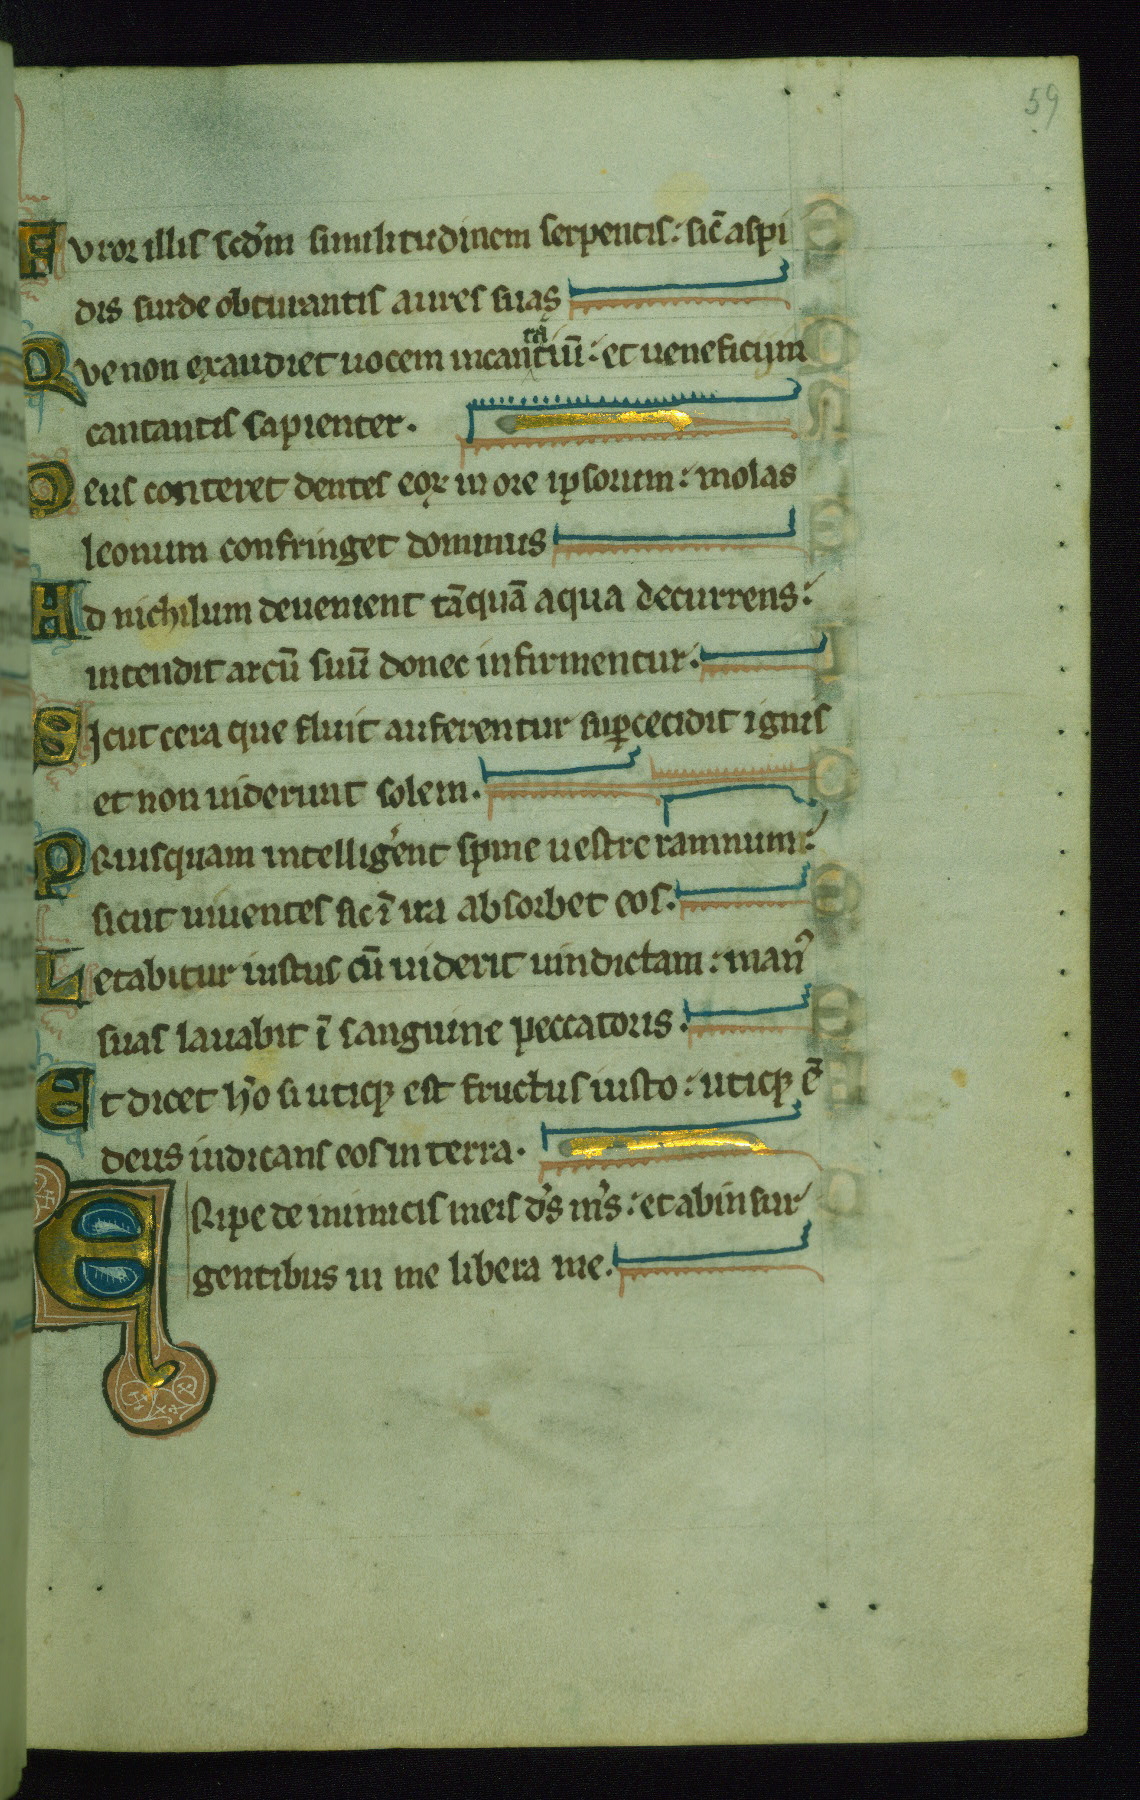 59
Furor illis scdm similitudinem serpentis: sic̄ aspi
dis surde obturantis aures suas
Que non exaudiet uocem incantatiū: et ueneficijm
cantantis sapienter.
Deus conteret dentes eoꝝ in ore ipsorum: molas
leonum confringet dominus
Ad nichilum deuenient tāquā aqua decurrens:
intendit arcū suū donec infirmentur.
Sicut cera que fluit auferentur suꝑcecidit ignis
et non uiderunt solem.
Priusquam intelligerent spine uestre ramnum:
sicut uiuentes sic ī ira absorbet eos.
Letabitur iustus cū uiderit uindictam: manꝰ
suas lauabit ī sanguine peccatoris.
Et dicet ho si utiqꝫ est fructus iusto: utiqꝫ ē
deus iudicans eos in terra.
Eripe de inimicis meis ds ms: et ab insur
gentibus in me libera me.